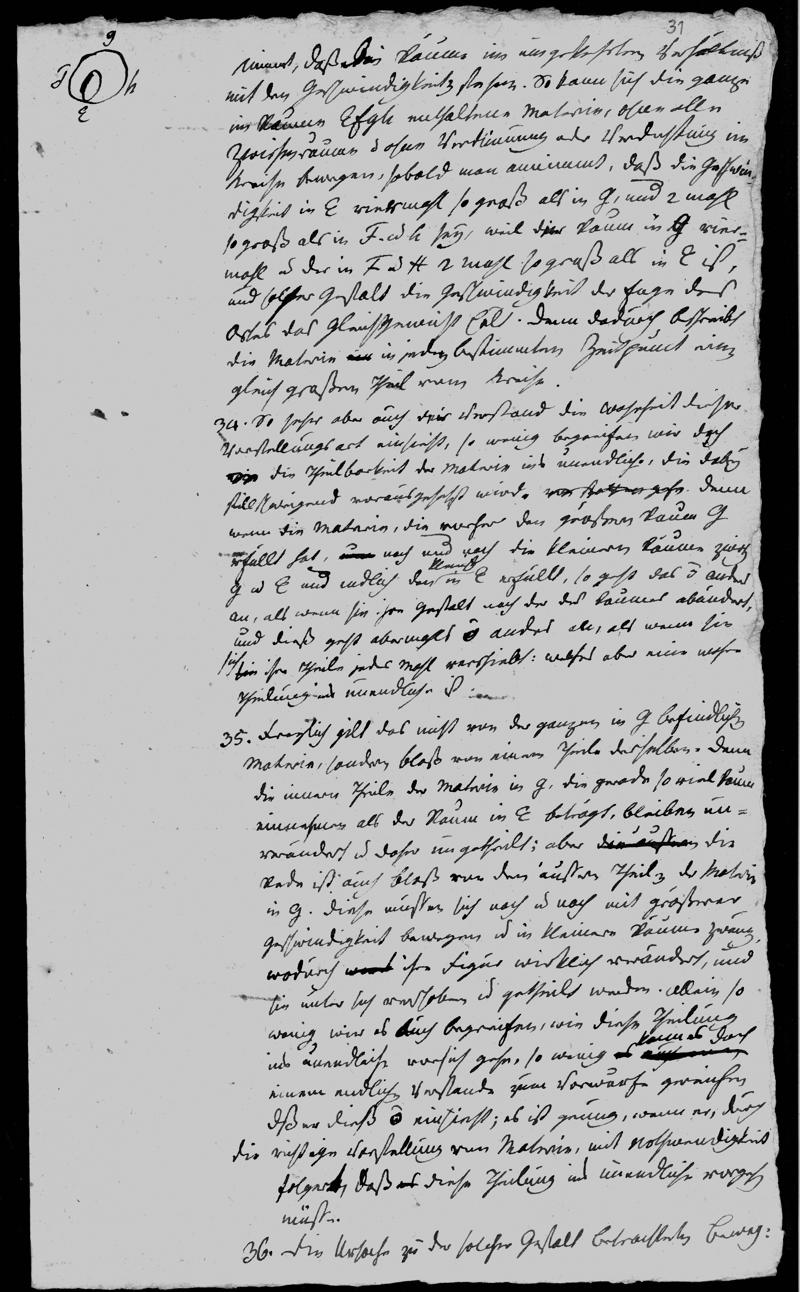 31
g
F h
E
nimmt, daß die Räume im umgekehrten Verhältniß
mit den Geschwindigkeiten stehen. So kann sich die ganze
im Raume EFgh enthaltene Materie, ohne alle
Zwischenräume u ohne Verdünnung oder Verdichtung im
Kreise bewegen, sobald man annimmt, daß die Geschwin-
digkeit in E viermahl so groß als in G, und 2 mahl
so groß als in F u h sey, weil der Raum in G vier-
mahl u der in F u H 2 mahl so groß als in E ist,
und solcher Gestalt die Geschwindigkeit der Enge des
Ortes das Gleichgewicht hält. Denn dadurch beschreibt
die Materie in jedem bestimmten Zeitpunct einen
gleich großen Theil vom Kreise.
34. So sehr aber auch der Verstand die Wahrheit dieser
Vorstellungsart einsieht, so wenig begreifen wir doch
die Theilbarkeit der Materie ins unendliche, die dabey
stillschweigend vorausgesetzt wird. Denn
wenn die Materie, die vorher den größern Raum G
erfüllt hat, nach und nach die kleinern Räume zwischen
G u E und endlich den kleinsten in E erfüllt, so geht das õ anders
an, als wenn sie ihre Gestalt nach der des Raumes abändert,
und dieß geht abermahls õ anders an, als wenn sie
ihre Theile jedes Mahl verschiebt: welches aber eine wahre
Theilung ins unendliche ist.
35. Freylich gilt das nicht von der ganzen in G befindlichen
Materie, sondern bloß von einem Theile derselben. Denn
die innern Theile der Materie in g, die gerade so viel Raum
einnehmen als der Raum in E beträgt, bleiben un-
verändert u daher ungetheilt; aber die
Rede ist auch bloß von den äußern Theilen der Materie
in G. Diese müssen sich nach u nach mit größerer
Geschwindigkeit bewegen u in kleinere Räume zwängen,
wodurch ihre Figur wirklich verändert, und
sie unter sich verschoben u getheilt werden. Allein so
wenig wir es auch begreifen, wie diese Theilung
ins unendliche vorsich gehe, so wenig kann es doch
einem endlichen Verstande zum Vorwurfe gereichen
daß er dieß õ einsieht; es ist genug, wenn er, durch
die richtige Vorstellung von Materie, mit Nothwendigkeit
folgert, daß diese Theilung ins unendliche vorgehen
müsse.
36. Die Ursache zu der solcher Gestalt betrachteten Beweg: